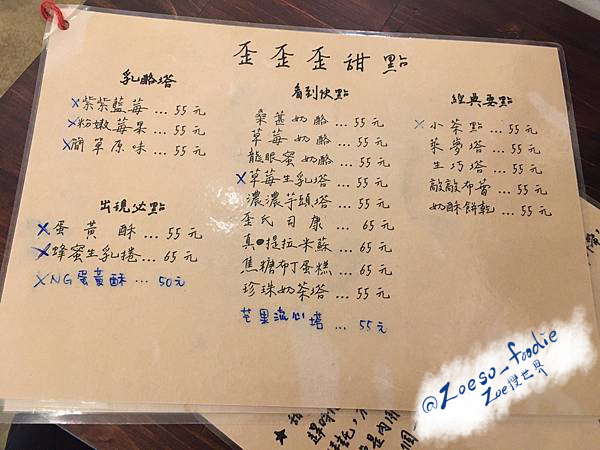 歪歪歪甜點
乳酪塔
×紫紫藍莓 ... 55元
×粉嫩莓果 ... 55元
×簡單原味 ... 55元
出現必點
×蛋黃酥 ... 55元
×蜂蜜生乳捲 ... 65元
×NG蛋黃酥 ... 50元
看到快點
桑葚奶酪 ... 55元
草莓奶酪 ... 55元
龍眼蜜奶酪 ... 55元
×草莓生乳塔 ... 55元
濃濃芋頭塔 ... 55元
歪氏司康 ... 65元
真提拉米蘇 ... 65元
焦糖布丁蛋糕 ... 65元
珍珠奶茶塔 ... 55元
芒果流心塔 ... 55元
經典要點
×小茶點 ... 55元
萊夢塔 ... 55元
生巧塔 ... 55元
敲敲布蕾 ... 55元
奶酥餅乾 ... 55元
@Zoeso_foodie
Zoe慢世界